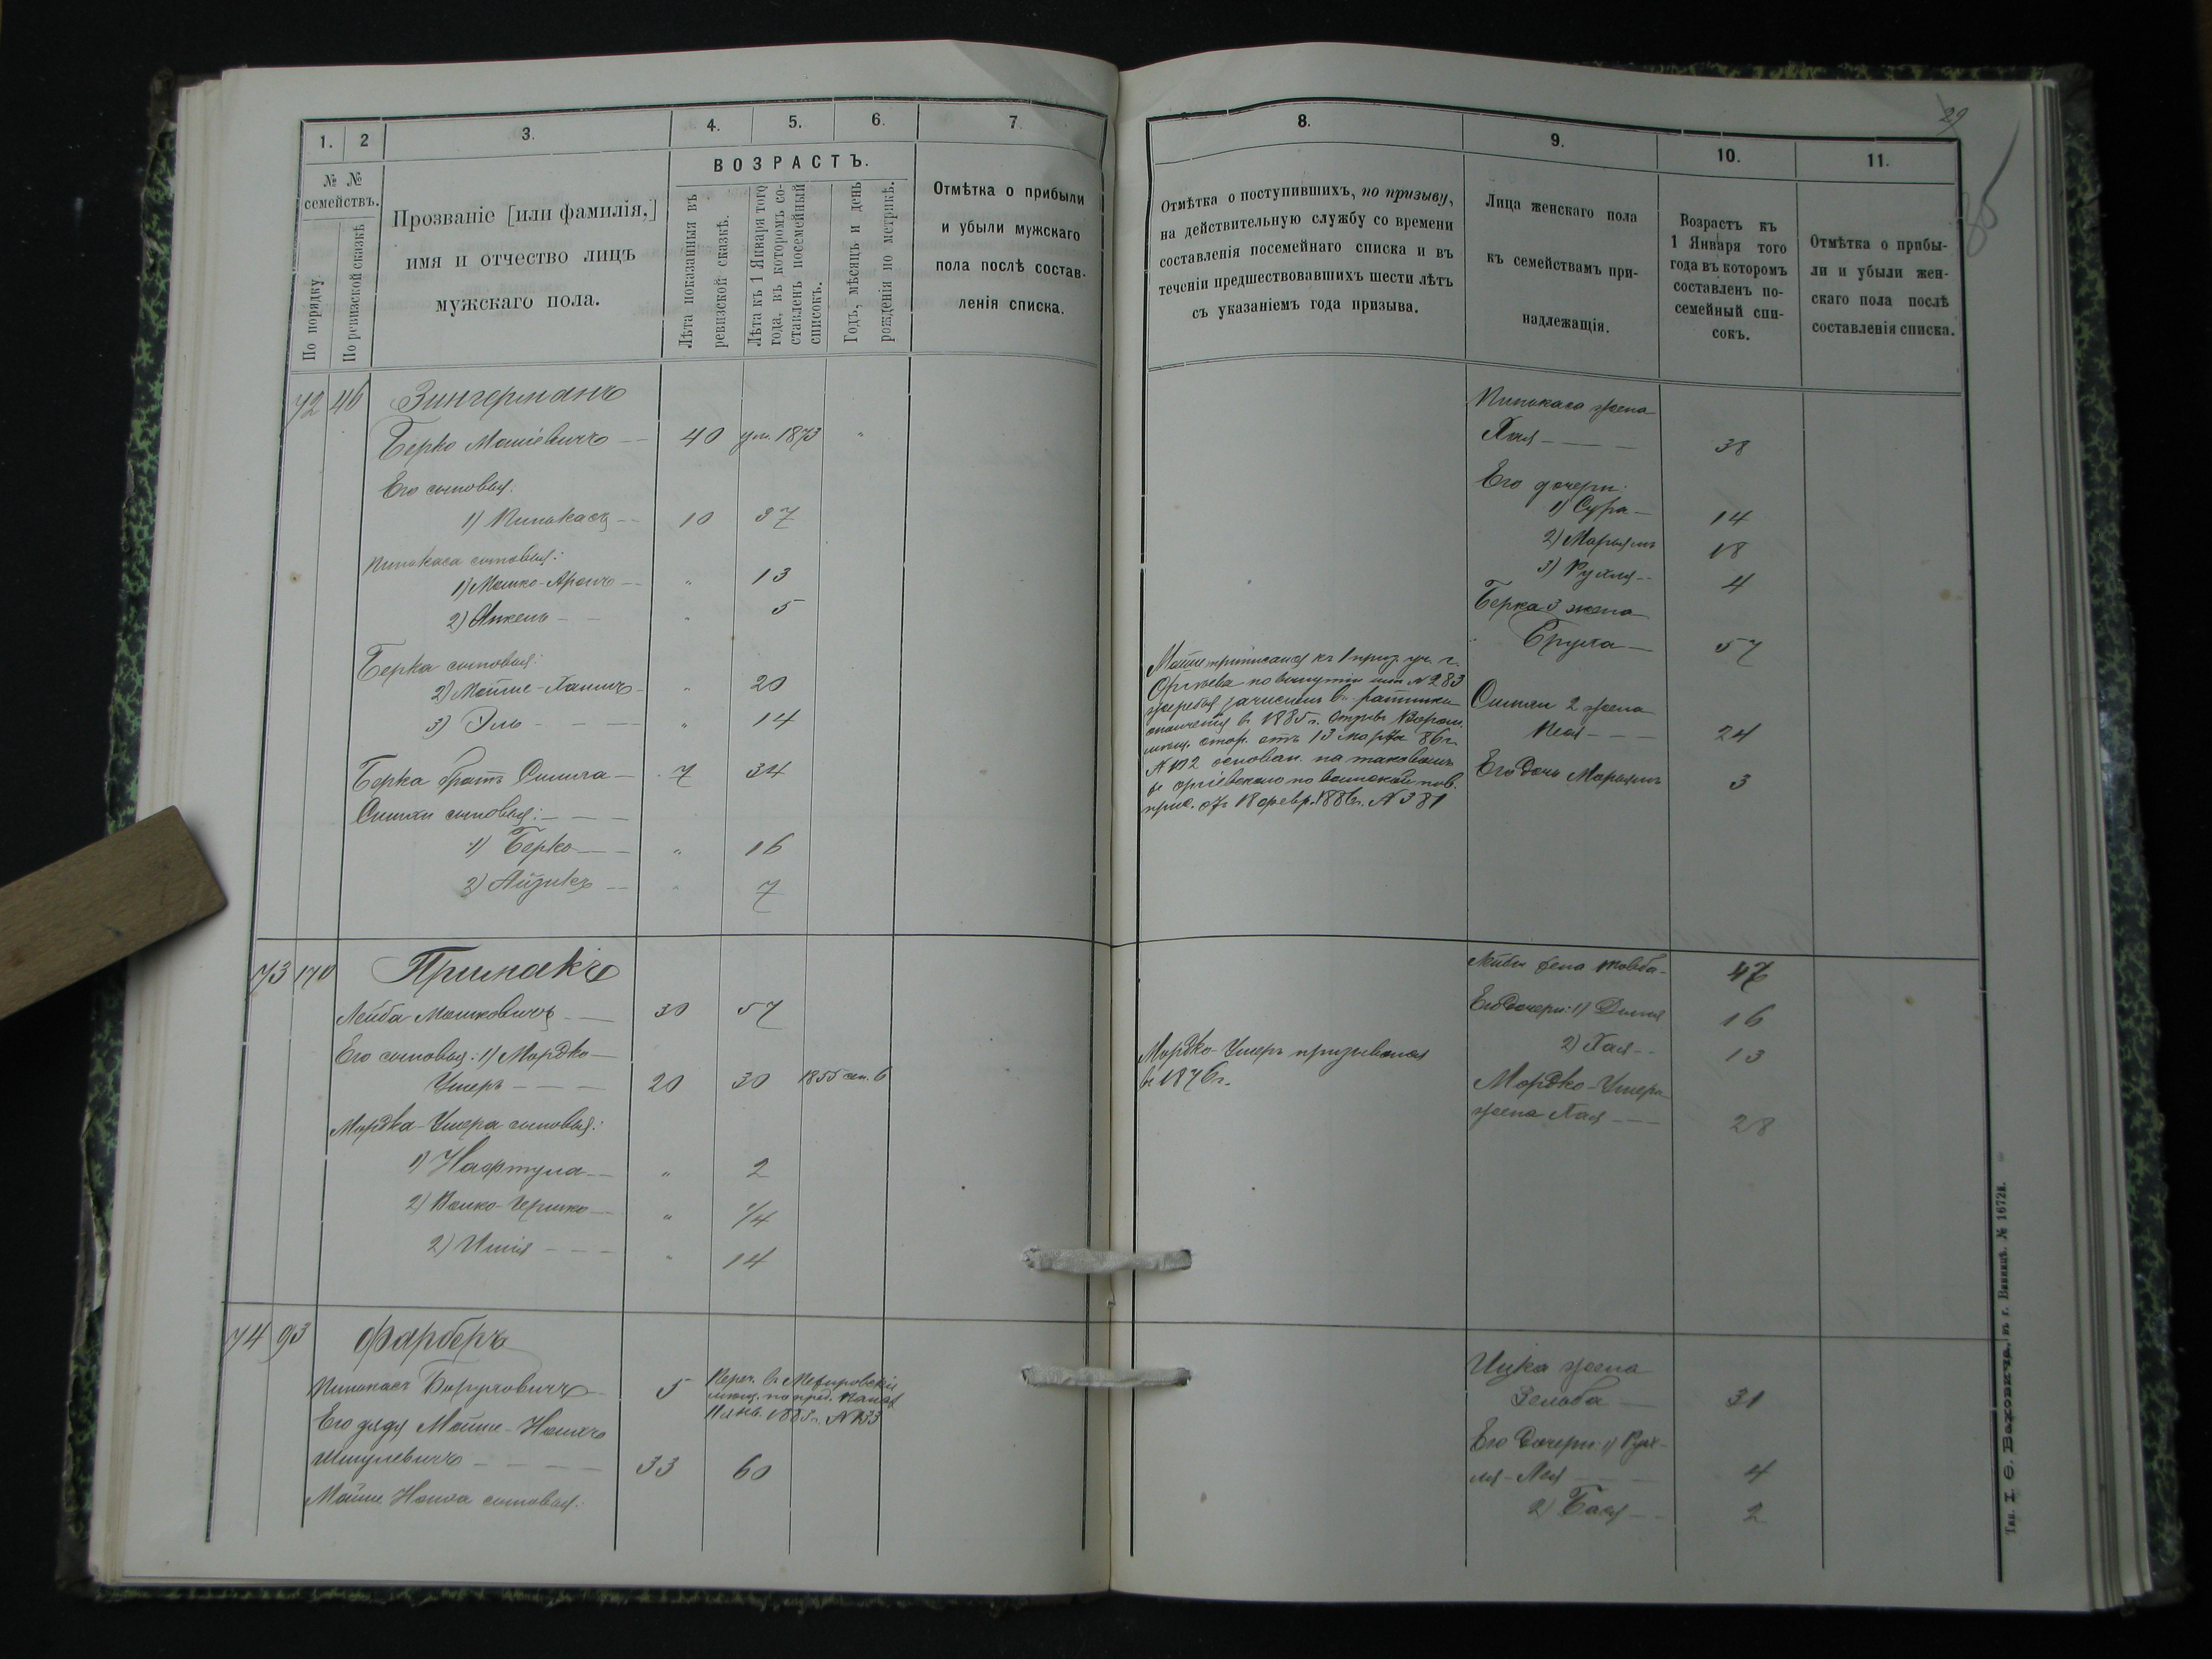 1.
2
3.
4.
5.
6.
7.
№ №
семействъ.
По порядку.
По ревизской сказкѣ
Прозваніе [или фамилія,]
имя и отчество лицъ
мужскаго пола.
ВОЗРАСТЪ.
Лѣта показанныя въ
ревизской сказкѣ.
Лѣта къ 1 Января того
года, въ которомъ со-
ставленъ посемейный
списокъ.
Годъ, мѣсяцъ и день
рожденія по метрикѣ.
Отмѣтка о прибыли
и убыли мужскаго
пола послѣ состав-
ленія списка.
72 46 Зингерманъ
Берко Мошіевичъ — 40 ум. 1873 "
Его сыновья:
1) Пинькасъ — 10 37
Пинькаса сыновья:
1) Мошко-Аронъ — " 13
2) Янкель — " 5
Берка сыновья:
2) Мойше-Хаимъ — " 20
3) Эль — — — " 14
Берка братъ Симха — 7 34
Симхи сыновья: — — —
1) Берко — — " 16
2) Айзикъ — " 7
73 170 Примакъ
Лейба Мошковичъ — 30 57
Его сыновья: 1) Мордко —
Ушеръ — — — 20 30 1855 сен. 6
Мордка-Ушера сыновья:
1) Нафтула — " 2
2) Іосько-Гершко — " 1/4
2) Ишія — — — " 14
74 93 Фарберъ
Пинькасъ Боруховичъ — 5 Переч. въ Межировскіе
мѣщ. по пред. Палат.
11 янв. 1885 г. № 133
Его дядя Мойше-Ноихъ
Шмулевичъ — — — — 33 60
Мойше Ноиха сыновья:
29
8.
9.
10.
11.
Отмѣтка о поступившихъ, по призыву,
на дѣйствительную службу со времени
составленія посемейнаго списка и въ
теченіи предшествовавшихъ шести лѣтъ
съ указаніемъ года призыва.
Лица женскаго пола
къ семействамъ при-
надлежащія.
Возрастъ къ
1 Января того
года въ которомъ
составленъ по-
семейный спи-
сокъ.
Отмѣтка о прибы-
ли и убыли жен-
скаго пола послѣ
составленія списка.
Пинькаса жена
Хая — — — 38
Его дочери:
1) Сура — 14
2) Марьямъ 18
3) Рухля — 4
Берка 3 жена
Бруха — 57
Мойше приписанъ къ 1 приз. уч. г.
Оргѣева по вынутіи имъ № 283
жеребья зачисленъ въ ратники
ополченія въ 1885 г.
отъ 13 марта 86 г.
№ 112 основан. на таковомъ
оргѣевскаго по воинской пов.
прис. отъ 18 февр. 1886 г. № 381
Симхи 2 жена
Песя — — — 24
Его дочь Марьямъ 3
Лейбы жена Товба — 47
Его дочери: 1) Двися 16
2) Хая — 13
Мордко-Ушеръ призывался
въ 1876 г.
Мордко-Ушера
жена Хая — — — 28
Ицка жена
Зельба — 31
Его дочери: 1) Рух-
ля-Лея — — — 4
2) Бася — 2
Тип. І. Ѳ. Ваховича, въ г. Винницѣ. № 1672а.